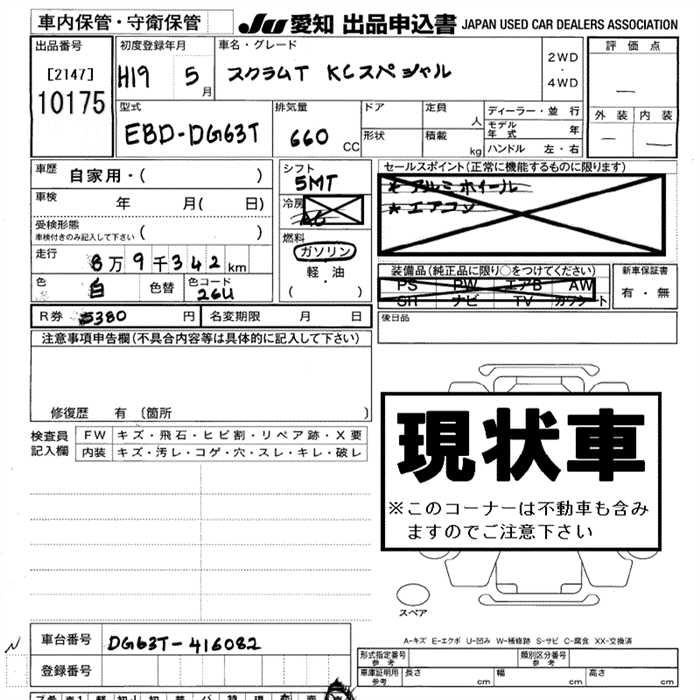 車内保管・守衛保管
JU 愛知 出品申込書 JAPAN USED CAR DEALERS ASSOCIATION
出品番号
[2147]
10175
初度登録年月
H19 5月
車名・グレード
スクラムT KCスペシャル
2WD
・
4WD
評価点
—
外装 内装
— —
型式
EBD-DG63T
排気量
660 CC
ドア
形状
定員 人
積載 kg
ディーラー・並行
モデル年式 年
ハンドル 左・右
車歴 自家用・( )
車検 年 月( 日)
受検形態
車検付きのみ記入して下さい ( )
走行 8万9千342km
色 白 色替 色コード 26U
シフト
5MT
冷房
AC
燃料
ガソリン
軽・油
( )
セールスポイント(正常に機能するものに限ります)
★ アルミホイール
★ エアコン
装備品(純正品に限り○をつけてください)
PS PW エアB AW
SH ナビ TV カワシート
新車保証書
有・無
R券 5380 円 名変期限 月 日
後日品
注意事項申告欄(不具合内容等は具体的に記入して下さい)
修復歴 有 (箇所 )
検査員記入欄
FW キズ・飛石・ヒビ割・リペア跡・X要
内装 キズ・汚レ・コゲ・穴・スレ・キレ・破レ
現状車
※このコーナーは不動車も含み
ますのでご注意下さい
スペア
A-キズ E-エクボ U-凹み W-補修跡 S-サビ C-腐食 XX-交換済
車台番号 DG63T-416082
登録番号
形式指定番号 参考
類別区分番号 参考
車庫証明用 参考 長さ cm 幅 cm 高さ cm